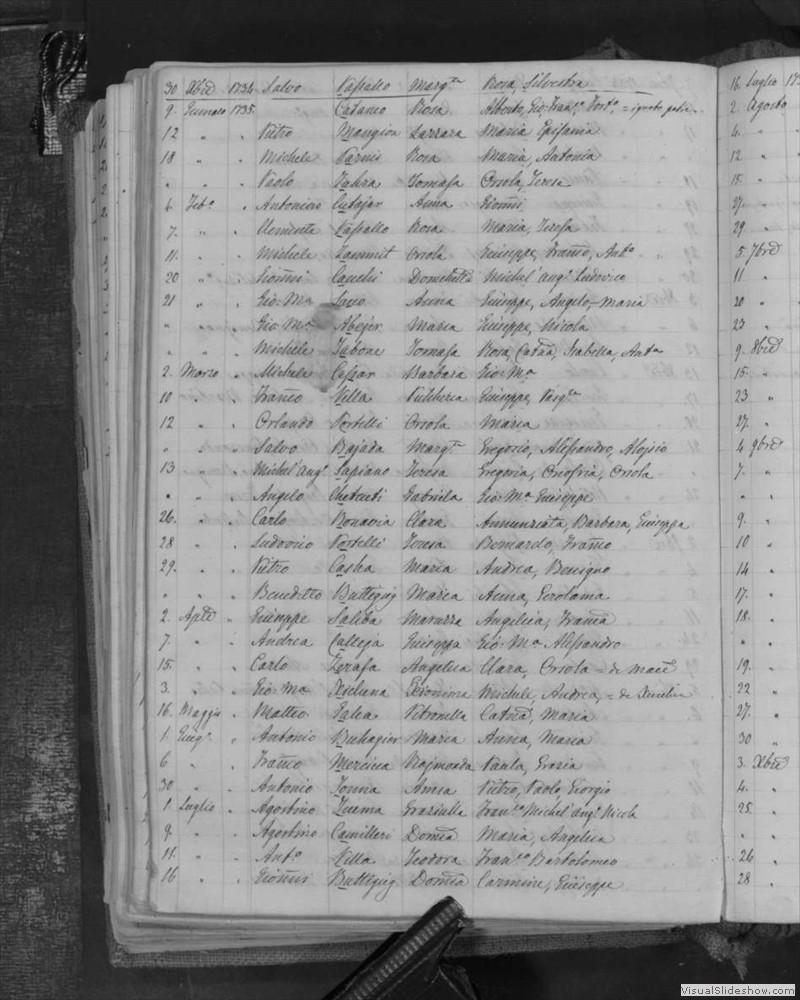 30 Xbre 1734 Salvo Vassallo Marg.ta Rosa, Silvestra
9. Gennaro 1735. Cataneo Rosa Alberto, Gio: Fran.co Fort.o = ignoto padre
12 " " Pietro Mangion Sarrara Maria Epifania
18 " " Michele Farrus Rosa Maria, Antonia
" " " Paolo Zahra Tomasa Orsola, Teresa
6 Feb.o " Antonino Cutajar Anna Gioanni
7. " " Clemente Vassallo Rosa Maria, Teresa
11. " " Michele Zammit Orsola Giuseppe, Franco, Ant.o
20 " " Gioanni Cauchi Domenica Michel'ang.o Ludovico
21 " " Gio: Ma Savo Anna Giuseppe, Angelo, Maria
" " " Gio: Ma Abejer Maria Giuseppe, Nicola
" " " Michele Tabone Tomasa Rosa, Catna, Isabella, Ant.a
2. Marzo " Michele Caspar Barbara Gio: Ma
10 " " Franco Villa Pulcheria Giuseppe, Pasq.le
12 " " Orlando Portelli Orsola Maria
" " " Salvo Bajada Marg.ta Gregorio, Alessandro, Aloisio
13 " " Michel'ang.o Sapiano Teresa Gregoria, Onofria, Orsola
" " " Angelo Chetcuti Gabriela Gio: Ma Giuseppe
26. " " Carlo Bonavia Clara Annunciata, Barbara, Giuseppa
28 " " Ludovico Portelli Teresa Bernardo, Franco
29. " " Pietro Casha Maria Andrea, Benigno
" " " Benedetto Buttigieg Maria Anna, Gerolama
2. Aple " Giuseppe Saliba Maruzza Angelica, Franca
7. " " Andrea Calleja Giuseppa Gio: Ma Alessandro
15. " " Carlo Zerafa Angelica Clara, Orsola =
3. " " Gio: Ma Xicluna Gironima Michele, Andrea, =
16. Maggio " Matteo Galea Petronella Catna, Maria
1. Giug.o " Antonio Buhagiar Maria Anna, Maria
6 " " Franco Mercieca Rajmonda Paula, Grazia
30 " " Antonio Tonna Anna Pietro, Paolo, Giorgio
1. Luglio " Agostino Zuema Graziulla Fran.co Michel'ang.o Nicola
9. " " Agostino Camilleri Domca Maria, Angelica
11. " " Ant.o Villa Teodora Fran.co Bartolomeo
16 " " Gioanni Buttigieg Domca Carmine, Giuseppe
16 Luglio 173
2. Agosto
4. "
12 "
15. "
27. "
29. "
5. 7bre
11 "
20 "
23 "
9. 8bre
15. "
23 "
27. "
4 9bre
7. "
" "
9. "
10 "
14 "
17. "
18. "
19. "
22 "
27. "
30 "
3. Xbre
4. "
25. "
" "
26 "
28 "
VisualSlideshow.com